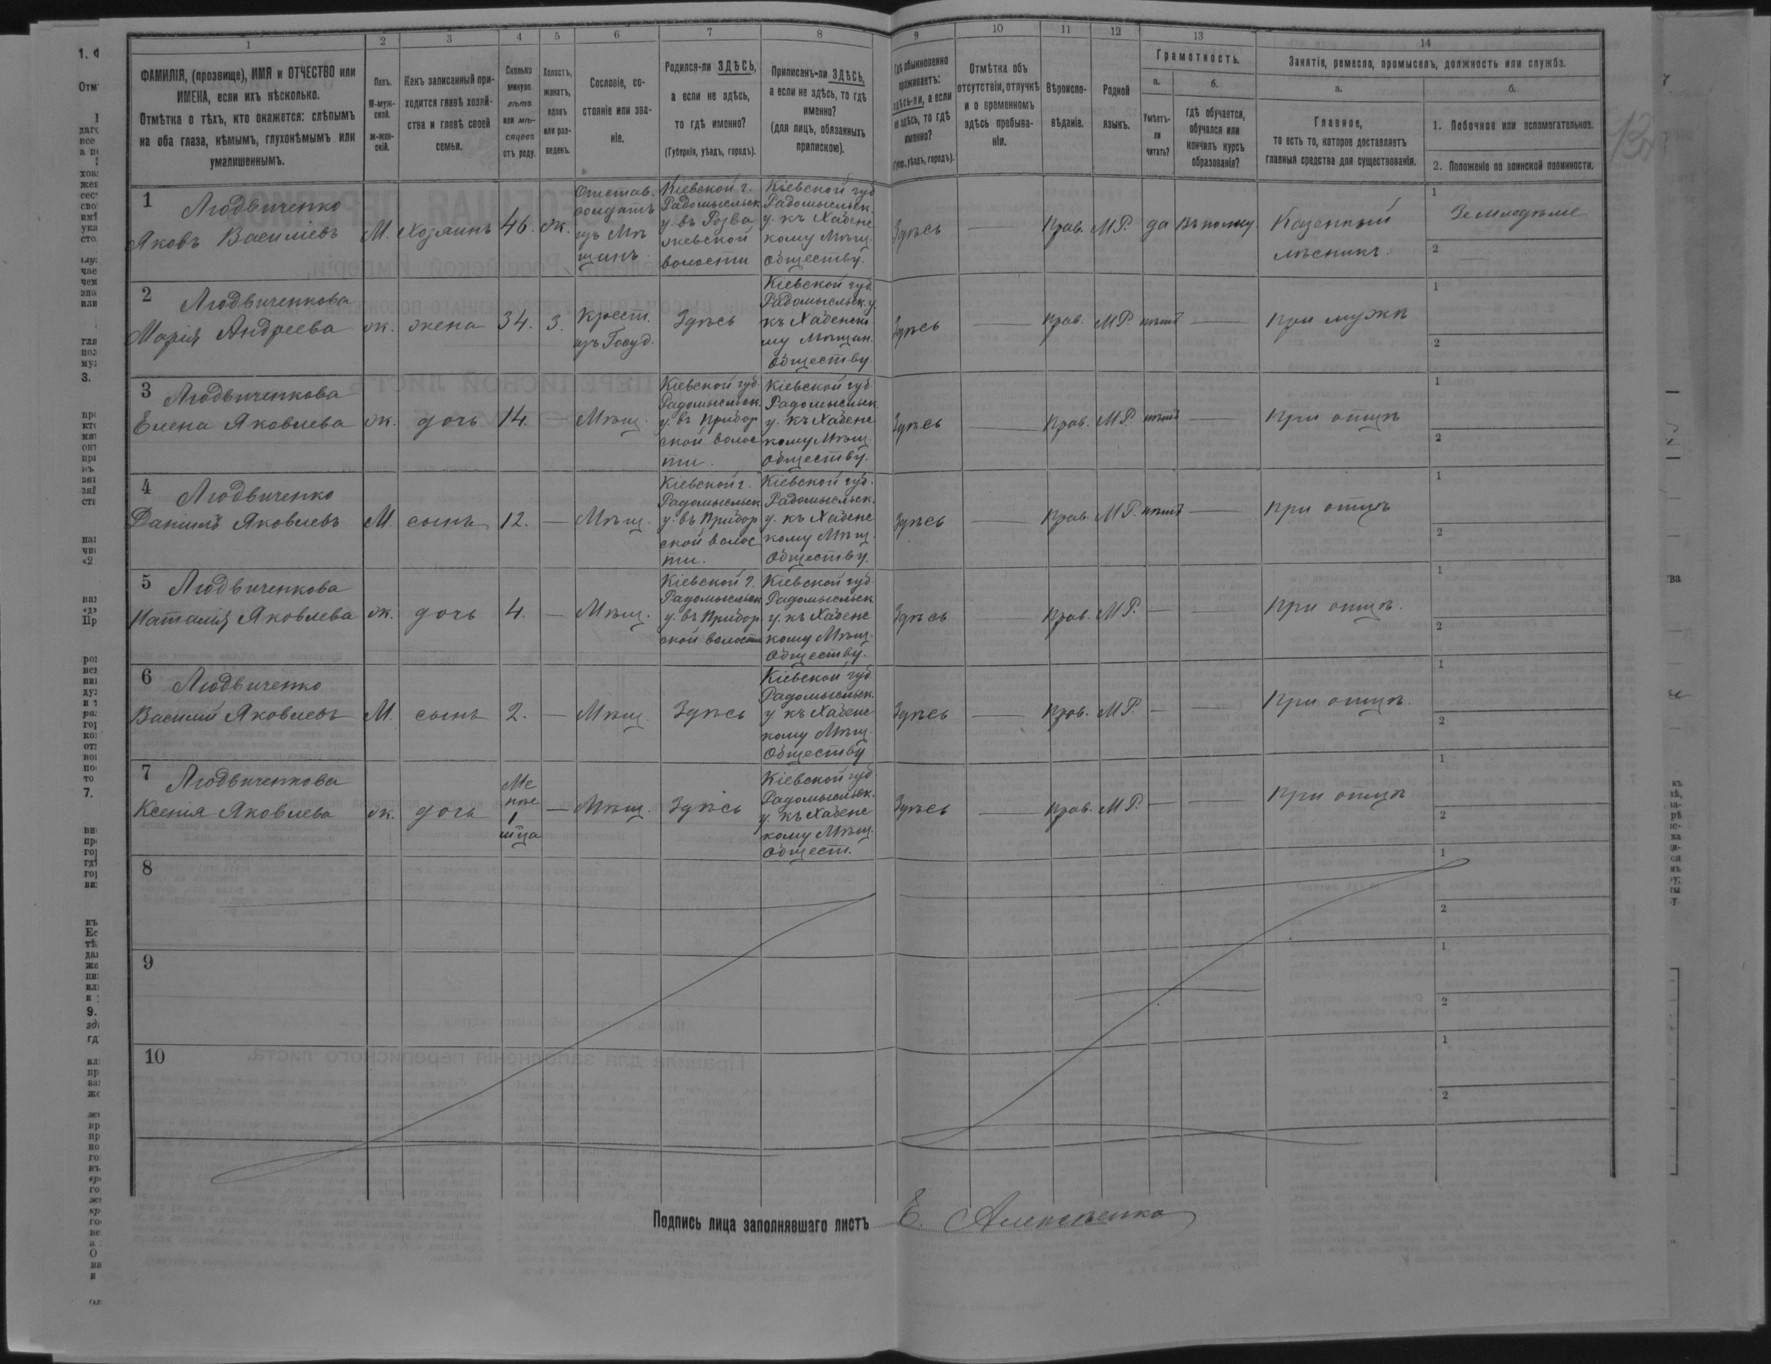 1 2 3 4 5 6 7 8 9 10 11 12 13 14
ФАМИЛІЯ, (прозвище), ИМЯ и ОТЧЕСТВО или ИМЕНА, если ихъ нѣсколько.
Отмѣтка о тѣхъ, кто окажется: слѣпымъ на оба глаза, нѣмымъ, глухонѣмымъ или умалишеннымъ.
Полъ. М-муж-ской. ж-жен-скій.
Какъ записанный при-ходится главѣ хозяй-ства и главѣ своей семьи.
Сколько минуло лѣтъ или мѣ-сяцевъ отъ роду.
Холостъ, женатъ, вдовъ или раз-веденъ.
Сословіе, со-стояніе или зва-ніе.
Родился-ли ЗДѢСЬ, а если не здѣсь, то гдѣ именно?
(Губернія, уѣздъ, городъ).
Приписанъ-ли ЗДѢСЬ, а если не здѣсь, то гдѣ именно?
(для лицъ, обязанныхъ припискою).
Гдѣ обыкновенно проживаетъ: здѣсь-ли, а если не здѣсь, то гдѣ именно?
(Губ., уѣздъ, городъ).
Отмѣтка объ отсутствіи, отлучкѣ и о временномъ здѣсь пребыва-ніи.
Вѣроиспо-вѣданіе.
Родной языкъ.
Грамотность.
а. Умѣетъ-ли читать?
б. Гдѣ обучается, обучался или кончилъ курсъ образованія?
Занятіе, ремесло, промыселъ, должность или служба.
а. Главное, то есть то, которое доставляетъ главныя средства для существованія.
б. 1. Побочное или вспомогательное.
2. Положеніе по воинской повинности.
1 Людвиченко
Яковъ Василіевъ М. хозяинъ 46. ж. Отстав. солдатъ изъ Мѣ щанъ Кіевской г. Радомысльск. у. въ Розва жевской волости Кіевской губ. Радомысльск. у. къ Хабенс кому Мѣщ. обществу. Здѣсь — Прав. МР. да Въ полку Казенный лѣсникъ. 1 Земледѣліе 2
2 Людвиченкова
Марія Андреева ж. жена 34. з. Крест. изъ Госуд. Здѣсь Кіевской губ. Радомысльск. у. къ Хабенско му Мѣщан. Обществу Здѣсь — Прав. МР. нѣтъ — При мужѣ 1 2
3 Людвиченкова
Елена Яковлева ж. дочь 14. — Мѣщ. Кіевской губ. Радомысльск. у. въ Прибор ской волос ти. Кіевской губ. Радомысльск. у. къ Хабенс кому Мѣщ. Обществу. Здѣсь — Прав. МР. нѣтъ — При отцѣ 1 2
4 Людвиченко
Даніилъ Яковлевъ М. сынъ 12. — Мѣщ. Кіевской г. Радомысльск. у. въ Прибор ской волос ти. Кіевской губ. Радомысльск. у. къ Хабенс кому Мѣщ. Обществу. Здѣсь — Прав. МР. нѣтъ — При отцѣ 1 2
5 Людвиченкова
Наталія Яковлева ж. дочь 4. — Мѣщ. Кіевской г. Радомысльск. у. въ Прибор ской волости Кіевской губ. Радомысльск. у. къ Хабенс кому Мѣщ. Обществу. Здѣсь — Прав. МР. — — При отцѣ. 1 2
6 Людвиченко
Василій Яковлевъ М. сынъ 2. — Мѣщ. Здѣсь Кіевской губ. Радомысльск. у. къ Хабенс кому Мѣщ. Обществу Здѣсь — Прав. МР. — — При отцѣ. 1 2
7 Людвиченкова
Ксенія Яковлева ж. дочь Ме нѣе 1 м-ца — Мѣщ. Здѣсь Кіевской губ. Радомысльск. у. къ Хабенс кому Мѣщ. Обществ. Здѣсь — Прав. МР. — — При отцѣ 1 2
8 1 2
9 1 2
10 1 2
Подпись лица заполнявшаго листъ Е. Алексѣенко